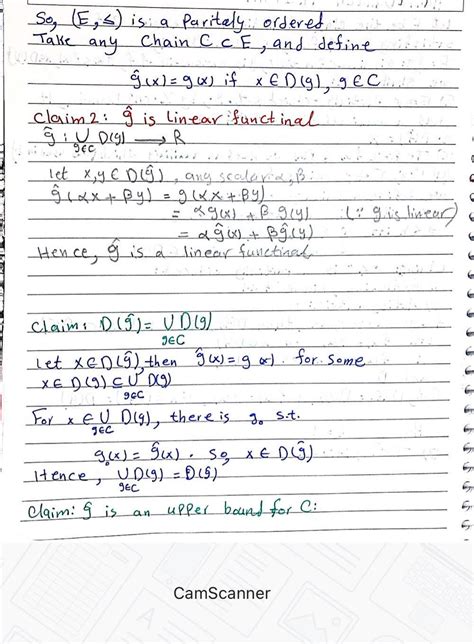 So, (E, ≤) is a Paritaly ordered.
Take any Chain C ⊂ E, and define
ĝ(x) = g(x) if x ∈ D(g), g ∈ C
Claim 2: ĝ is linear functinal
ĝ : ∪ D(g) → R
g∈C
let x, y ∈ D(ĝ), any scalar α, β:
ĝ(αx + βy) = g(αx + βy)
= αg(x) + β g(y) (∵ g is linear)
= αĝ(x) + βĝ(y)
Hence, ĝ is a linear functinal
Claim: D(ĝ) = ∪ D(g)
g∈C
Let x ∈ D(ĝ), then ĝ(x) = g(x) for some
x ∈ D(g) ⊆ ∪ D(g)
g∈C
For x ∈ ∪ D(g), there is g₀ s.t.
g∈C
g₀(x) = ĝ(x). So, x ∈ D(ĝ)
Hence, ∪ D(g) = D(ĝ)
g∈C
Claim: ĝ is an upper bound for C:
CamScanner